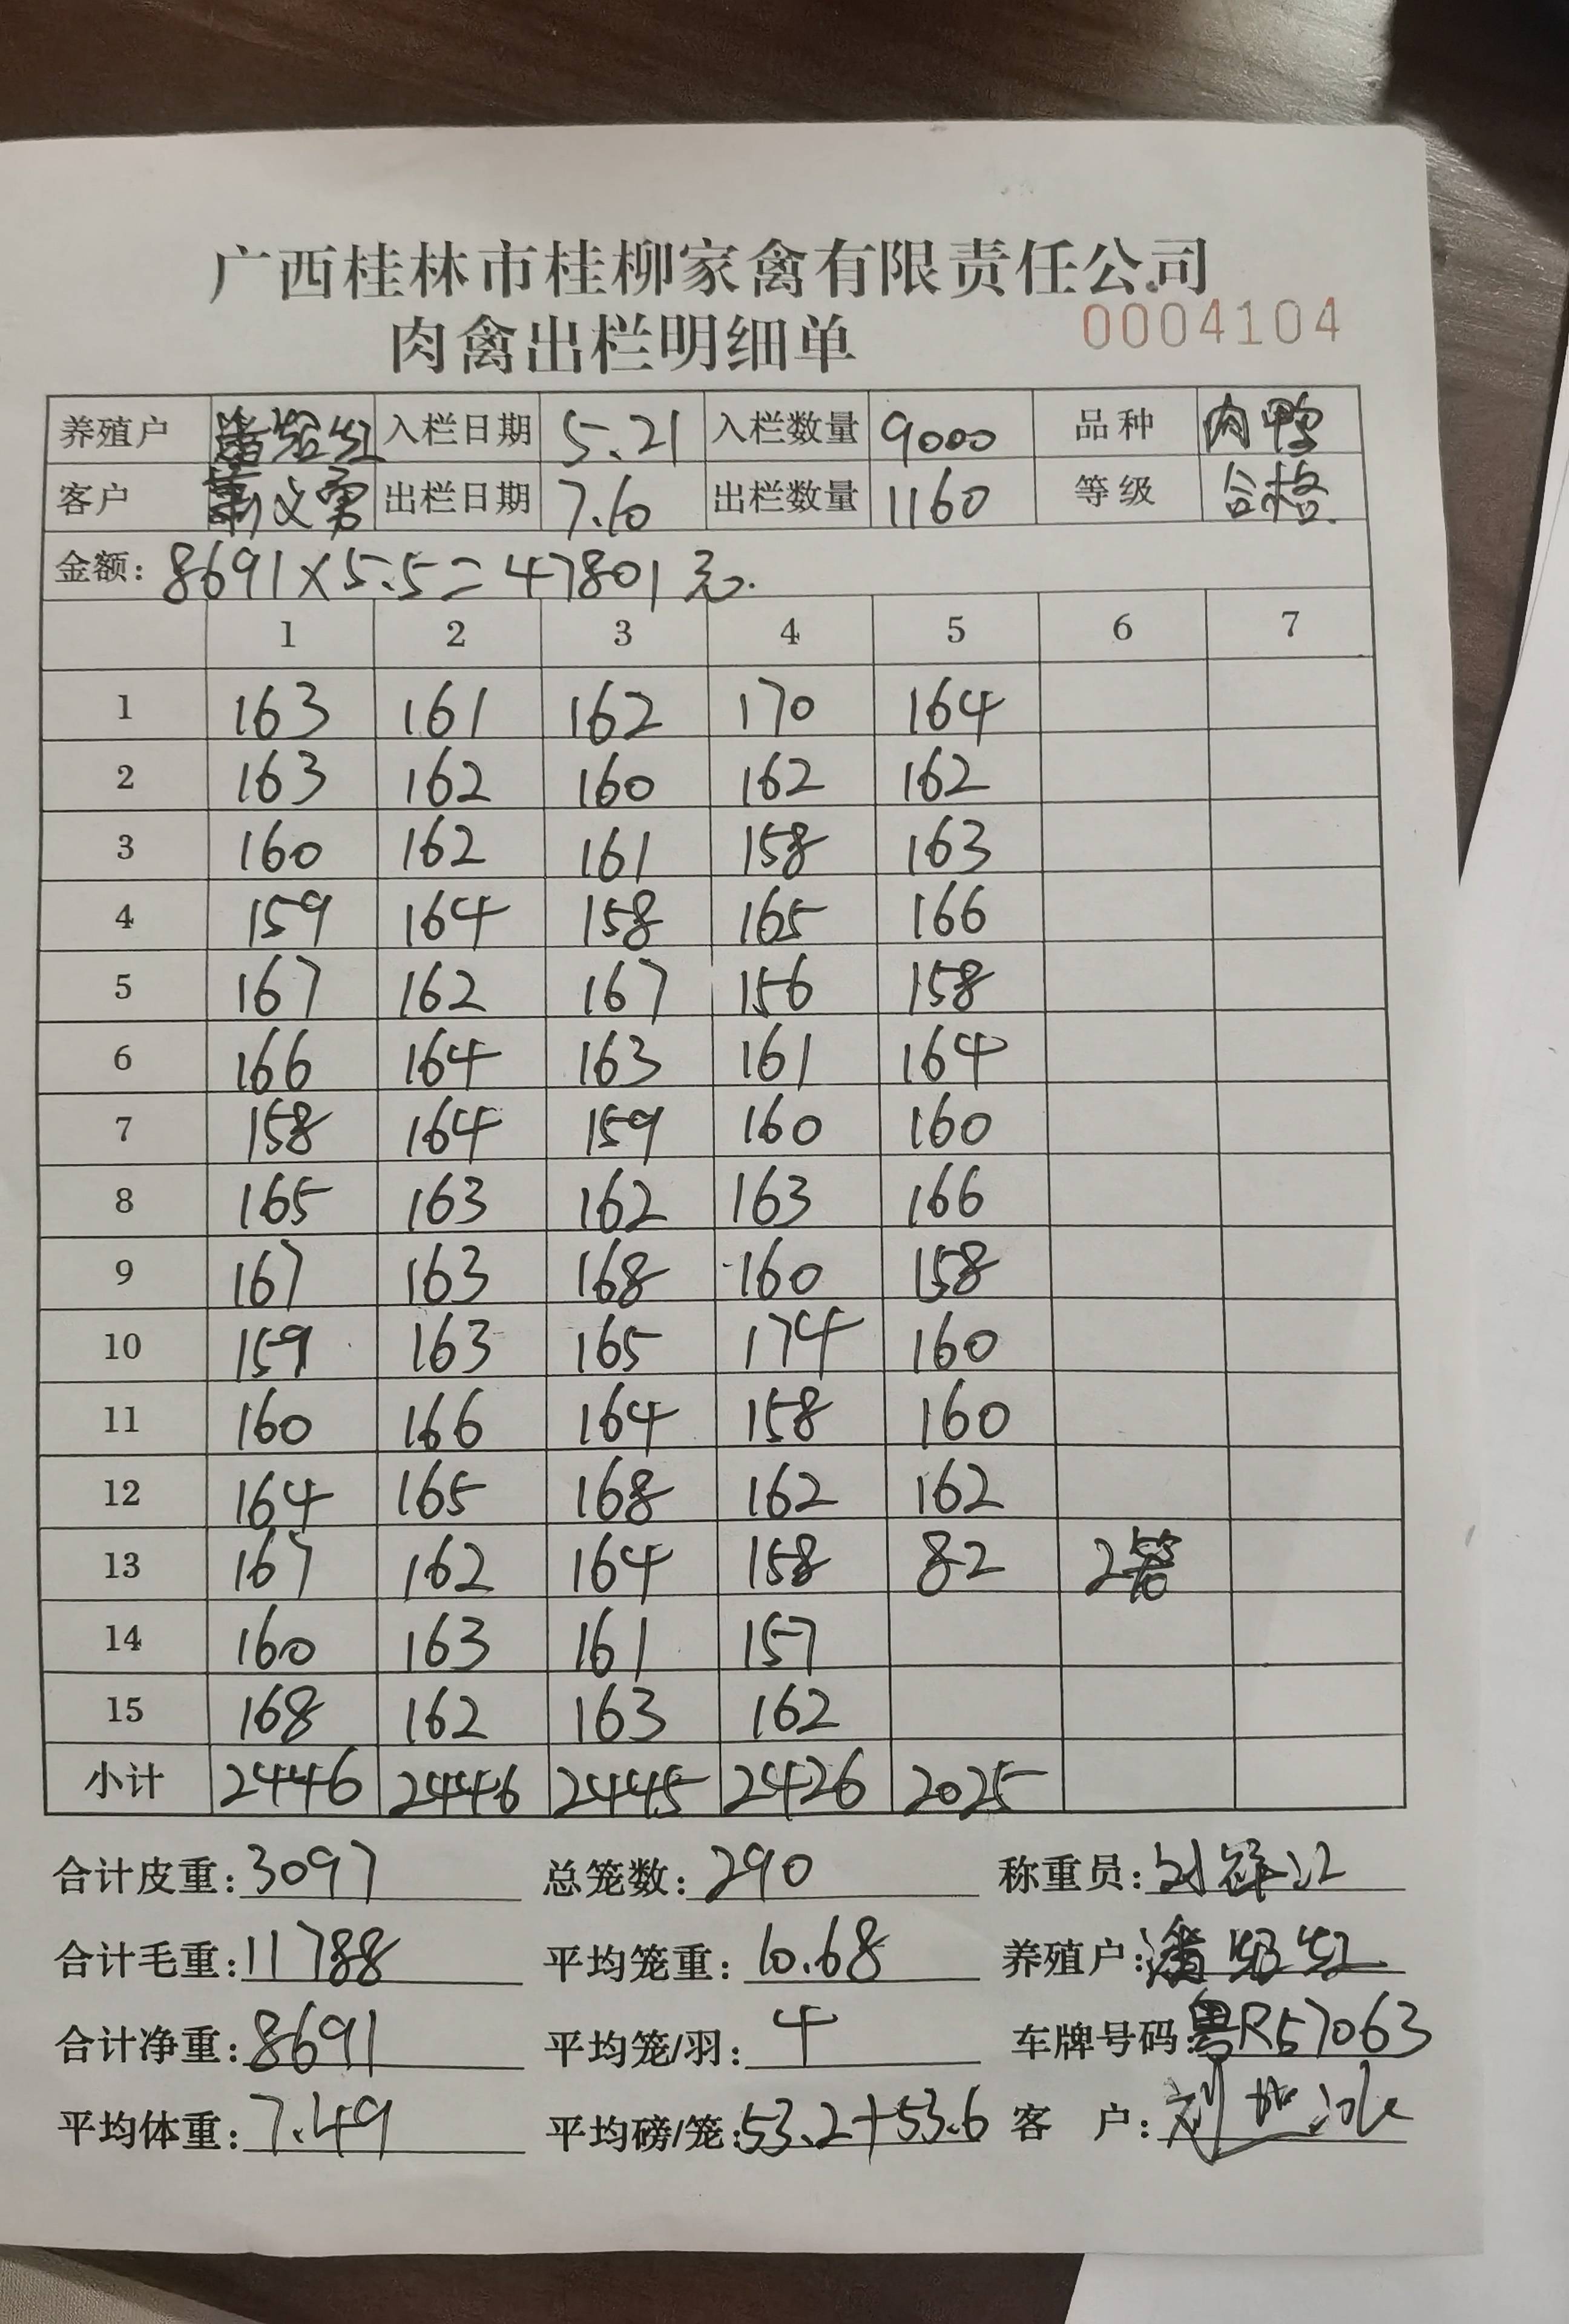 广西桂林市桂柳家禽有限责任公司
肉禽出栏明细单 0004104
养殖户 潘紹红 入栏日期 5.21 入栏数量 9000 品种 肉鸭
客户 文勇 出栏日期 7.10 出栏数量 1160 等级 合格
金额: 8691×5.5=47801元.
1 2 3 4 5 6 7
1 163 161 162 170 164
2 163 162 160 162 162
3 160 162 161 158 163
4 159 164 158 165 166
5 167 162 167 156 158
6 166 164 163 161 164
7 158 164 159 160 160
8 165 163 162 163 166
9 167 163 168 160 158
10 159 163 165 174 160
11 160 166 164 158 160
12 164 165 168 162 162
13 167 162 164 158 82 2
14 160 163 161 157
15 168 162 163 162
小计 2446 2446 2445 2426 2025
合计皮重: 3097 总笼数: 290 称重员: 刘祥江
合计毛重: 11788 平均笼重: 10.68 养殖户: 潘紹红
合计净重: 8691 平均笼/羽: 4 车牌号码: 粤R57063
平均体重: 7.49 平均磅/笼: 53.2+53.6 客 户: 刘